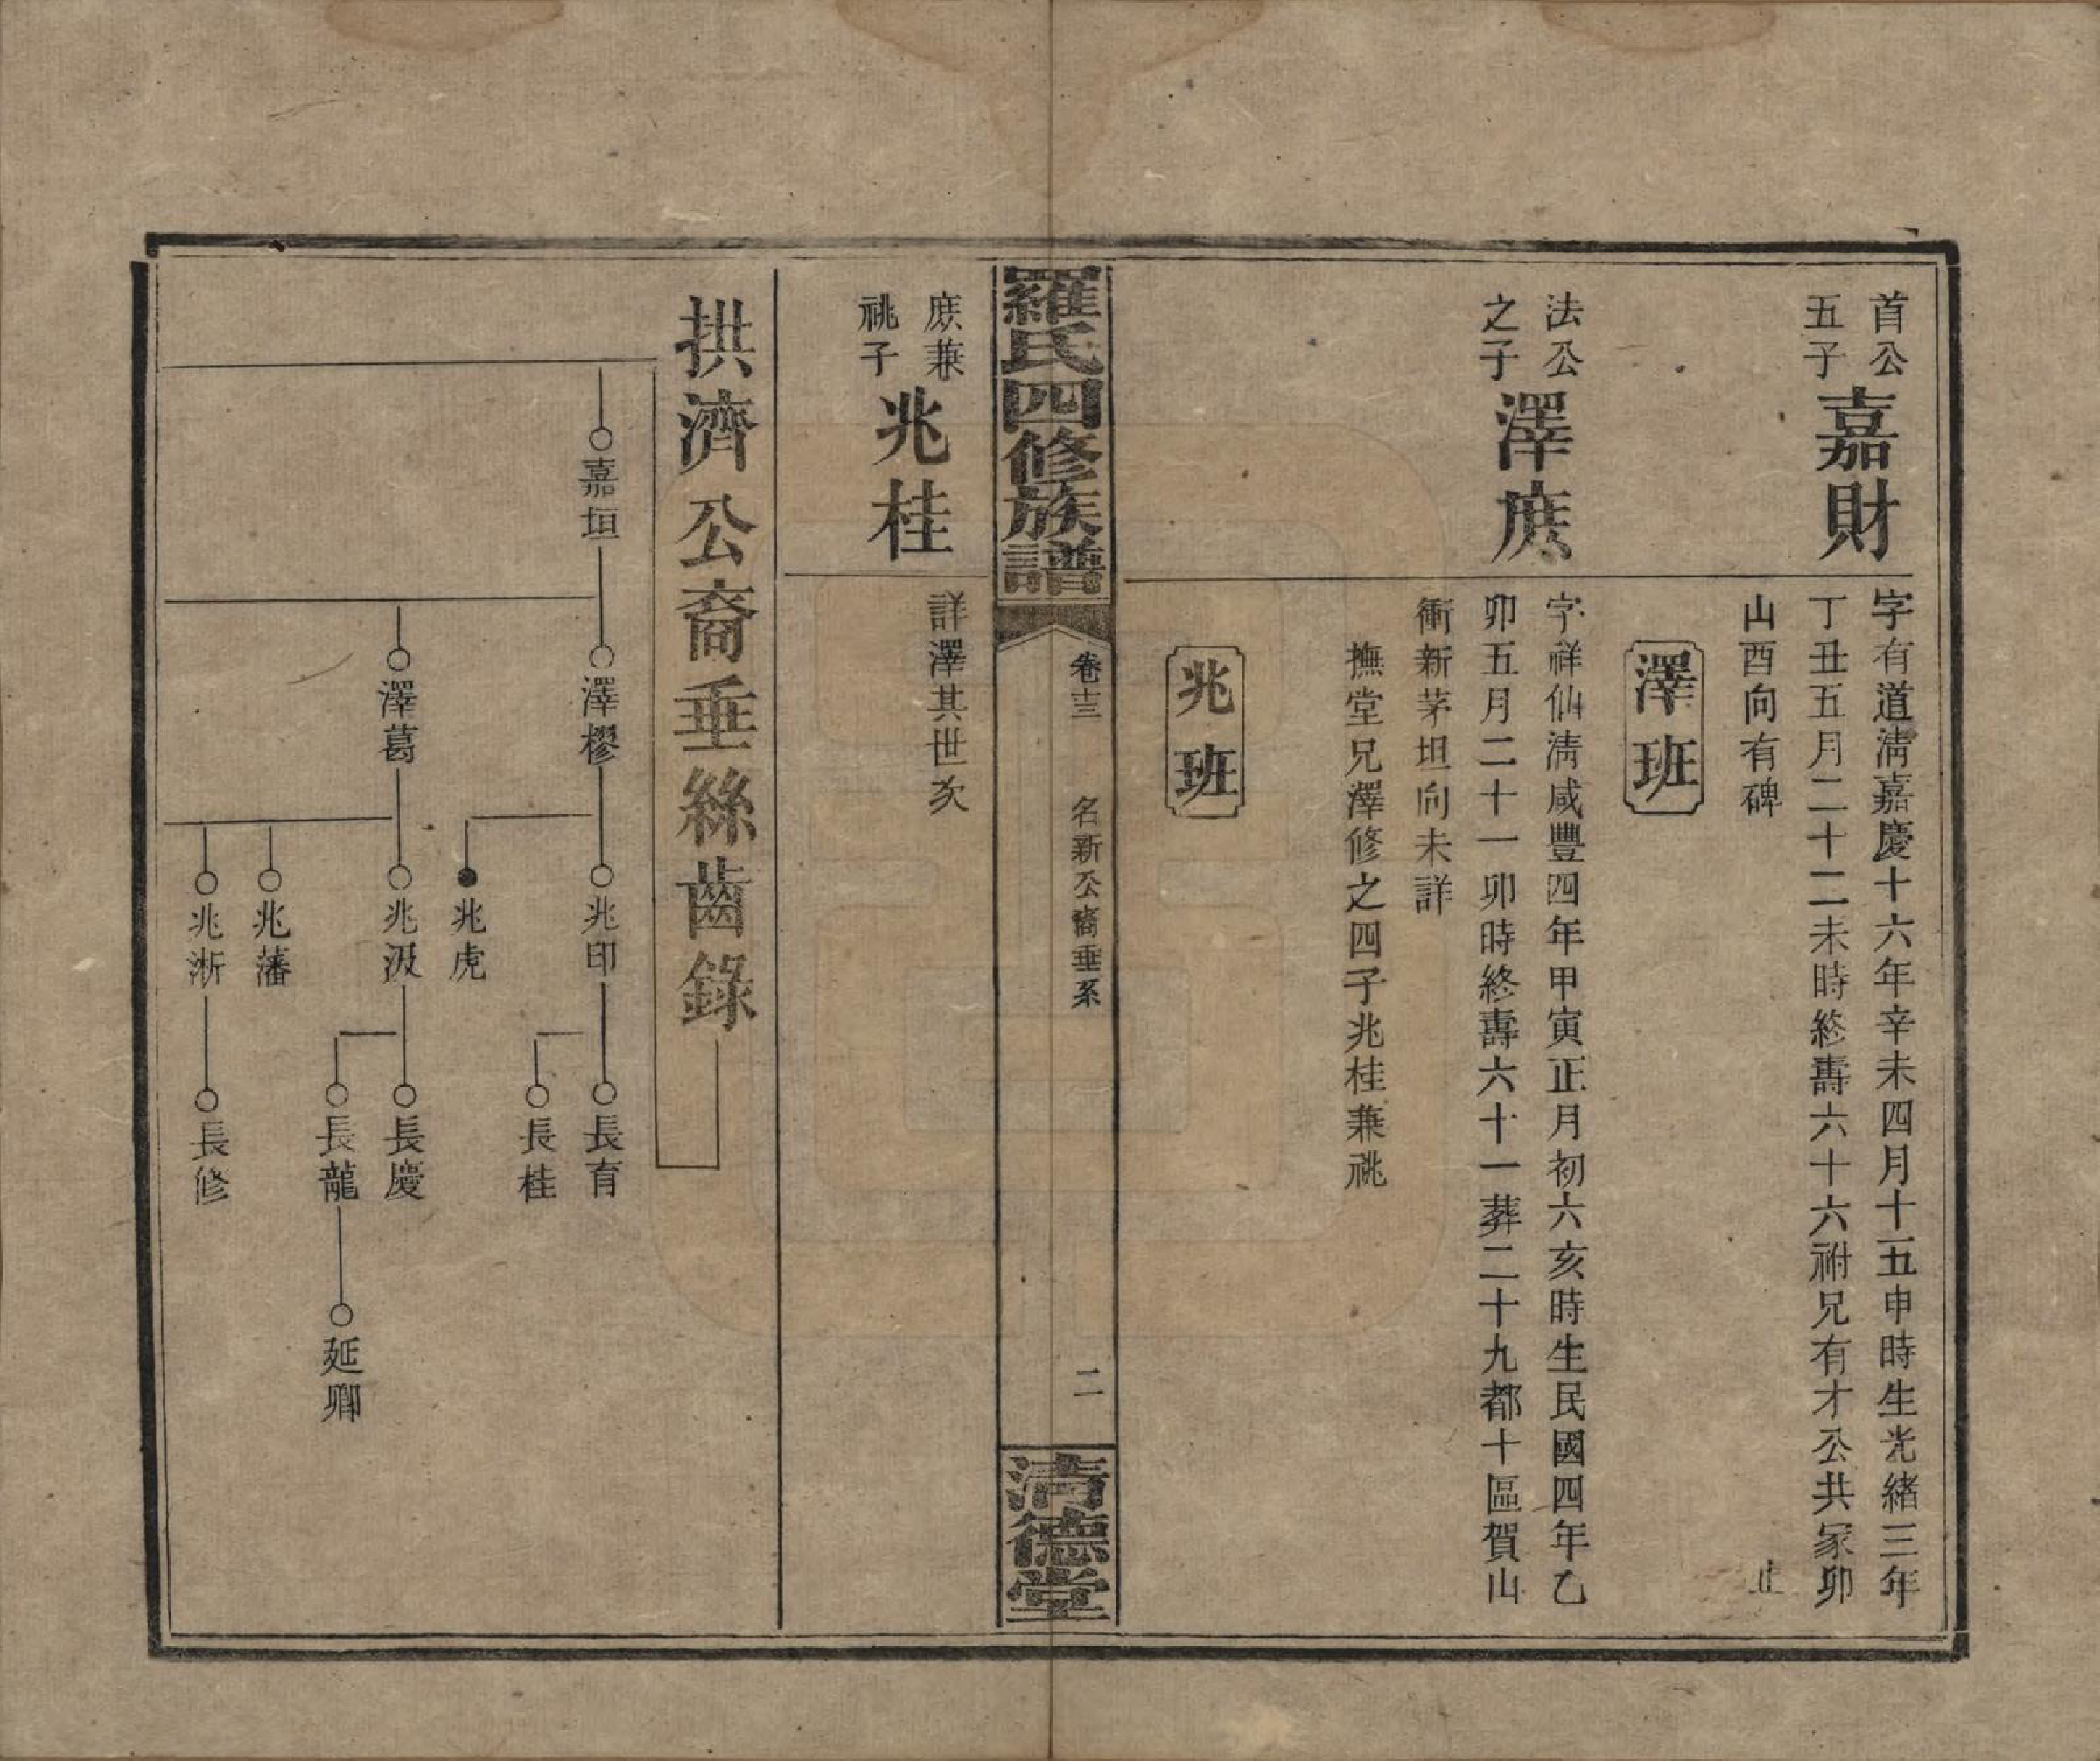 首公
五子
嘉財
字有道淸嘉慶十六年辛未四月十五申時生光緒三年
丁丑五月二十二未時終壽六十六祔兄有才公共冢卯
山酉向有碑
止
澤班
法公
之子
澤庶
字祥仙淸咸豐四年甲寅正月初六亥時生民國四年乙
卯五月二十一卯時終壽六十一葬二十九都十區賀山
衝新茅坦向未詳
撫堂兄澤修之四子兆桂兼祧
兆班
羅氏四修族譜
卷十三
名新公裔垂系
二
淸德堂
庶兼
祧子
兆桂
詳澤其世次
拱濟公裔垂絲齒錄
嘉垣
澤樛
兆印
長育
長桂
兆虎
澤葛
兆汲
長慶
長龍
延卿
兆藩
兆淅
長修